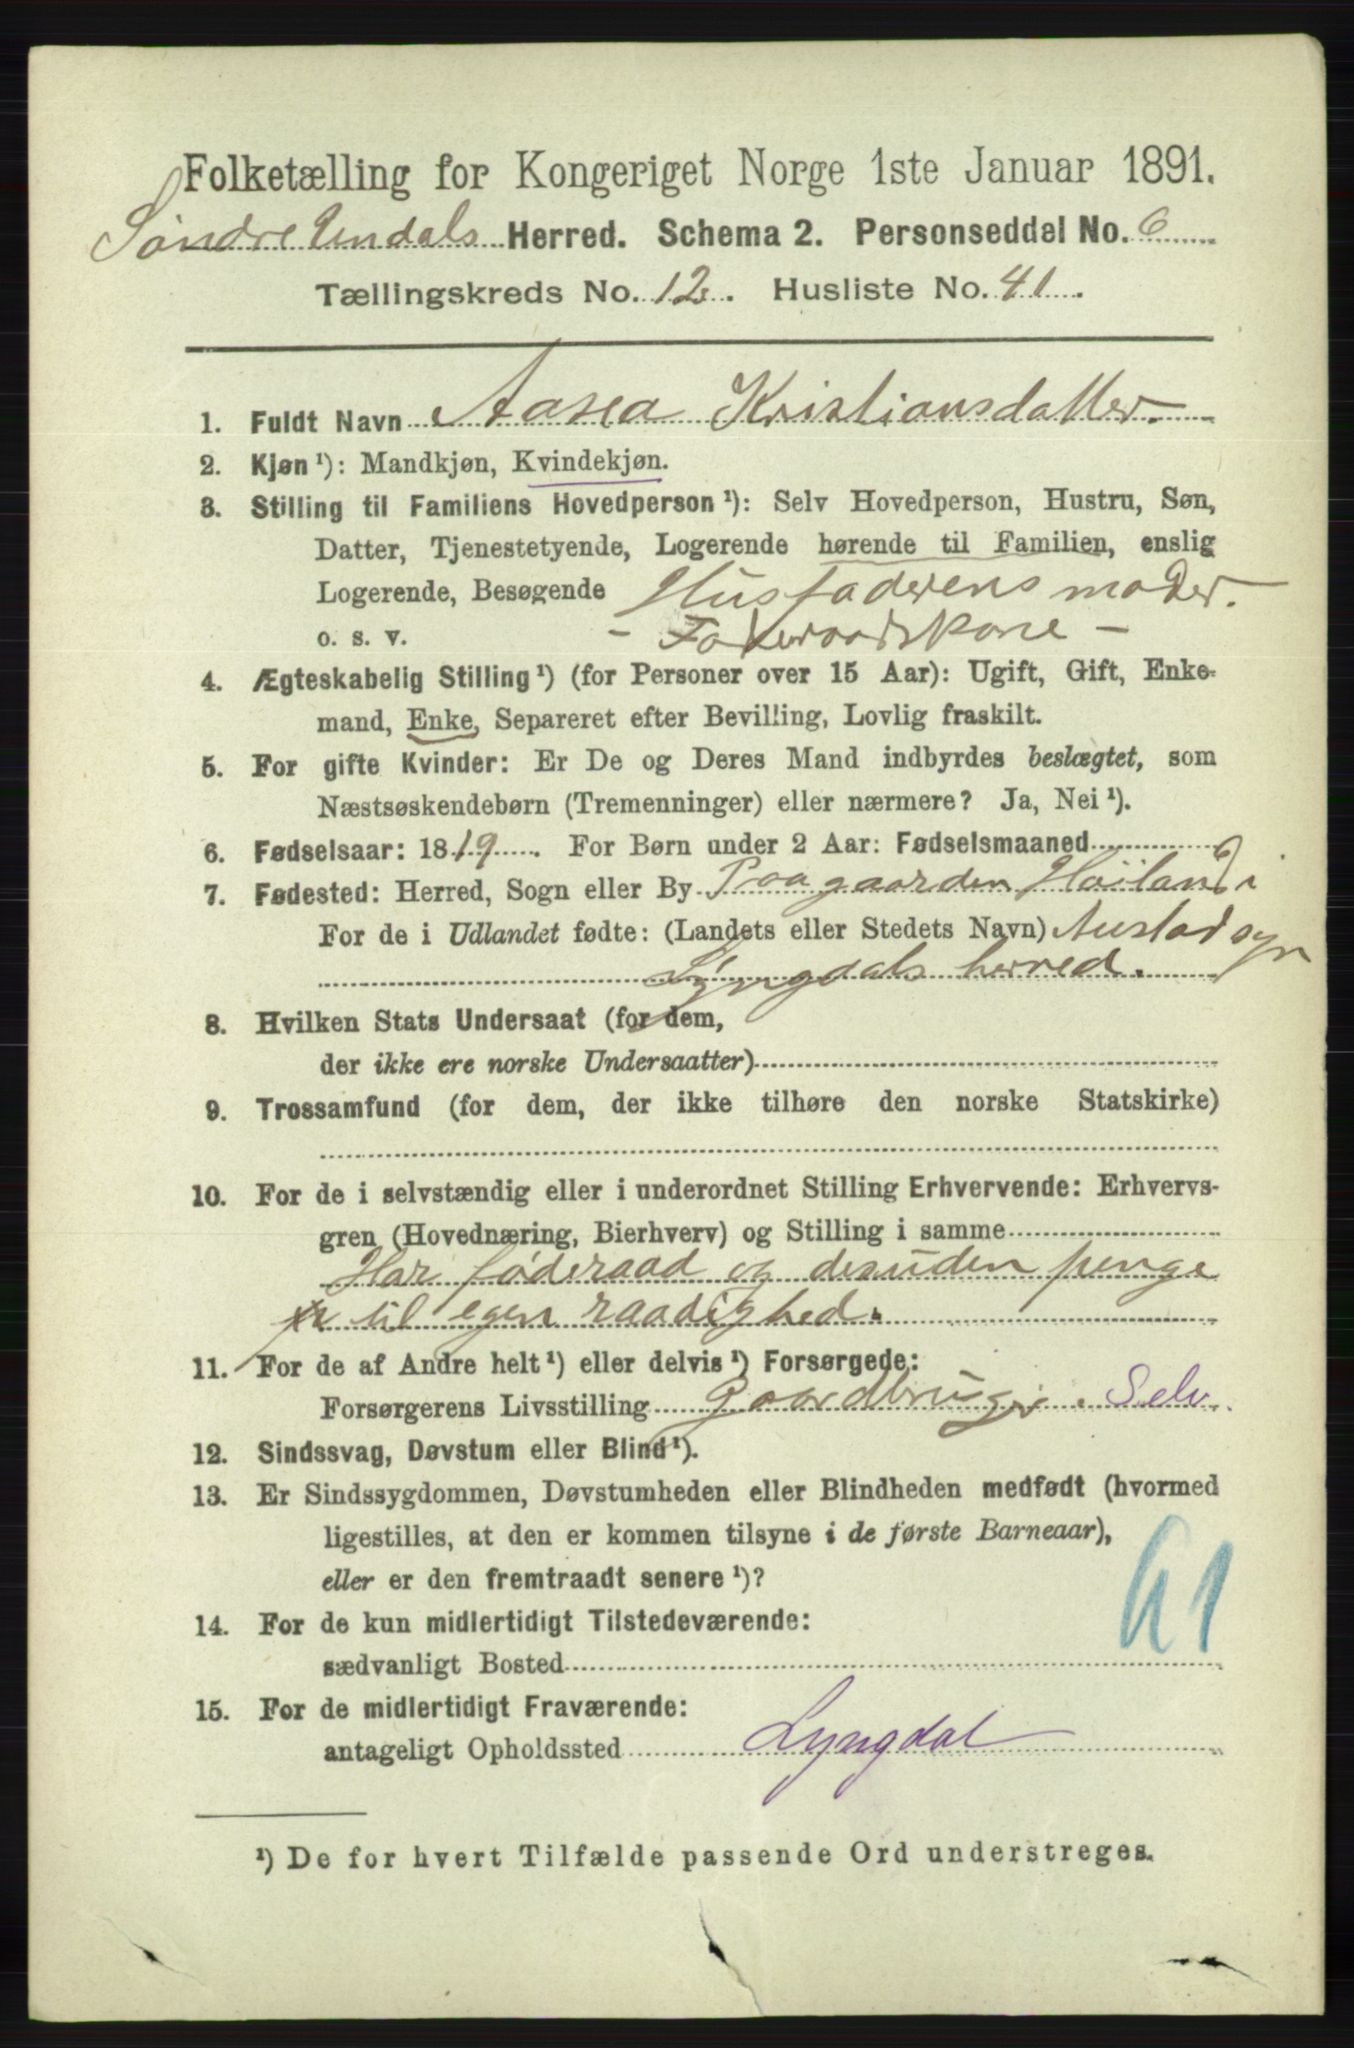 Folketælling for Kongeriget Norge 1ste Januar 1891.
Søndre Undals Herred. Schema 2. Personseddel No. 6
Tællingskreds No. 12. Husliste No. 41.
1. Fuldt Navn Aasea Kristiansdatter.
2. Kjøn ¹): Mandkjøn, Kvindekjøn.
3. Stilling til Familiens Hovedperson ¹): Selv Hovedperson, Hustru, Søn,
Datter, Tjenestetyende, Logerende hørende til Familien, enslig
Logerende, Besøgende Husfaderens moder.
o. s. v. - Føderaadskone -
4. Ægteskabelig Stilling ¹) (for Personer over 15 Aar): Ugift, Gift, Enke-
mand, Enke, Separeret efter Bevilling, Lovlig fraskilt.
5. For gifte Kvinder: Er De og Deres Mand indbyrdes beslægtet, som
Næstsøskendebørn (Tremenninger) eller nærmere? Ja, Nei ¹).
6. Fødselsaar: 1819. For Børn under 2 Aar: Fødselsmaaned
7. Fødested: Herred, Sogn eller By Paa gaarden Höiland i
For de i Udlandet fødte: (Landets eller Stedets Navn) Austad sogn
Lyngdals herred.
8. Hvilken Stats Undersaat (for dem,
der ikke ere norske Undersaatter)
9. Trossamfund (for dem, der ikke tilhøre den norske Statskirke)
10. For de i selvstændig eller i underordnet Stilling Erhvervende: Erhvervs-
gren (Hovednæring, Bierhverv) og Stilling i samme
Har føderaad og desuden penge
til egen raadighed.
11. For de af Andre helt ¹) eller delvis ¹) Forsørgede:
Forsørgerens Livsstilling Gaardbruger. Selv.
12. Sindssvag, Døvstum eller Blind ¹).
13. Er Sindssygdommen, Døvstumheden eller Blindheden medfødt (hvormed
ligestilles, at den er kommen tilsyne i de første Barneaar),
eller er den fremtraadt senere ¹)?
14. For de kun midlertidigt Tilstedeværende:
sædvanligt Bosted
15. For de midlertidigt Fraværende:
antageligt Opholdssted Lyngdal
¹) De for hvert Tilfælde passende Ord understreges.